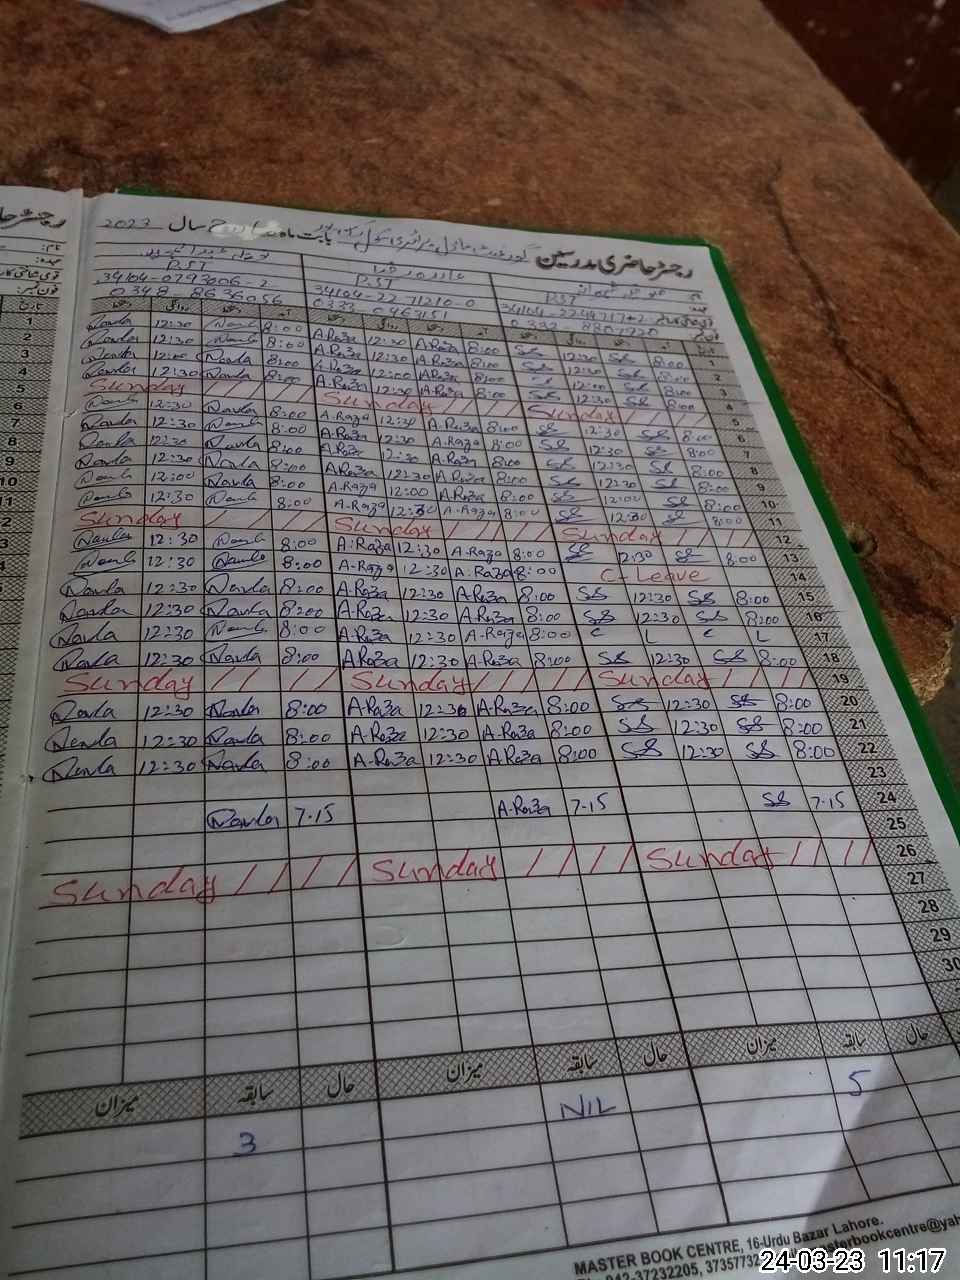 رجسٹر حاضری مدرسین گورنمنٹ ماڈل پرائمری سکول بابت ماہ مارچ سال 2023
PST PST PST
34104-0793006-2 34104-2271210-0
0348 8636056 0333-0463151 0332-8807920
تاریخ
Nawla 12:30 Nawla 8:00 A.Raza 12:30 A.Raza 8:00 SS 12:30 SS 8:00 1
Nawla 12:30 Nawla 8:00 A.Raza 12:30 A.Raza 8:00 SS 12:30 SS 8:00 2
Nawla 12:00 Nawla 8:00 A.Raza 12:00 A.Raza 8:00 SS 12:00 SS 8:00 3
Nawla 12:30 Nawla 8:00 A.Raza 12:30 A.Raza 8:00 SS 12:30 SS 8:00 4
Sunday Sunday Sunday 5
Nawla 12:30 Nawla 8:00 A.Raza 12:30 A.Raza 8:00 SS 12:30 SS 8:00 6
Nawla 12:30 Nawla 8:00 A.Raza 12:30 A.Raza 8:00 SS 12:30 SS 8:00 7
Nawla 12:30 Nawla 8:00 A.Raza 12:30 A.Raza 8:00 SS 12:30 SS 8:00 8
Nawla 12:30 Nawla 8:00 A.Raza 12:30 A.Raza 8:00 SS 12:30 SS 8:00 9
Nawla 12:00 Nawla 8:00 A.Raza 12:00 A.Raza 8:00 SS 12:00 SS 8:00 10
Nawla 12:30 Nawla 8:00 A.Raza 12:30 A.Raza 8:00 SS 12:30 SS 8:00 11
Sunday Sunday Sunday 12
Nawla 12:30 Nawla 8:00 A.Raza 12:30 A.Raza 8:00 SS 12:30 SS 8:00 13
Nawla 12:30 Nawla 8:00 A.Raza 12:30 A.Raza 8:00 C-Leave 14
Nawla 12:30 Nawla 8:00 A.Raza 12:30 A.Raza 8:00 SS 12:30 SS 8:00 15
Nawla 12:30 Nawla 8:00 A.Raza 12:30 A.Raza 8:00 SS 12:30 SS 8:00 16
Nawla 12:30 Nawla 8:00 A.Raza 12:30 A.Raza 8:00 C L C L 17
Nawla 12:30 Nawla 8:00 A.Raza 12:30 A.Raza 8:00 SS 12:30 SS 8:00 18
Sunday Sunday Sunday 19
Nawla 12:30 Nawla 8:00 A-Raza 12:30 A-Raza 8:00 SS 12:30 SS 8:00 20
Nawla 12:30 Nawla 8:00 A-Raza 12:30 A-Raza 8:00 SS 12:30 SS 8:00 21
Nawla 12:30 Nawla 8:00 A-Raza 12:30 A.Raza 8:00 SS 12:30 SS 8:00 22
23
Nawla 7.15 A-Raza 7.15 SS 7.15 24
25
Sunday Sunday Sunday 26
27
28
29
30
میزان سابقہ حال میزان سابقہ حال میزان سابقہ حال
3 NIL 5
MASTER BOOK CENTRE, 16-Urdu Bazar Lahore.
042-37232205, 3735773 masterbookcentre@yah
24-03-23 11:17